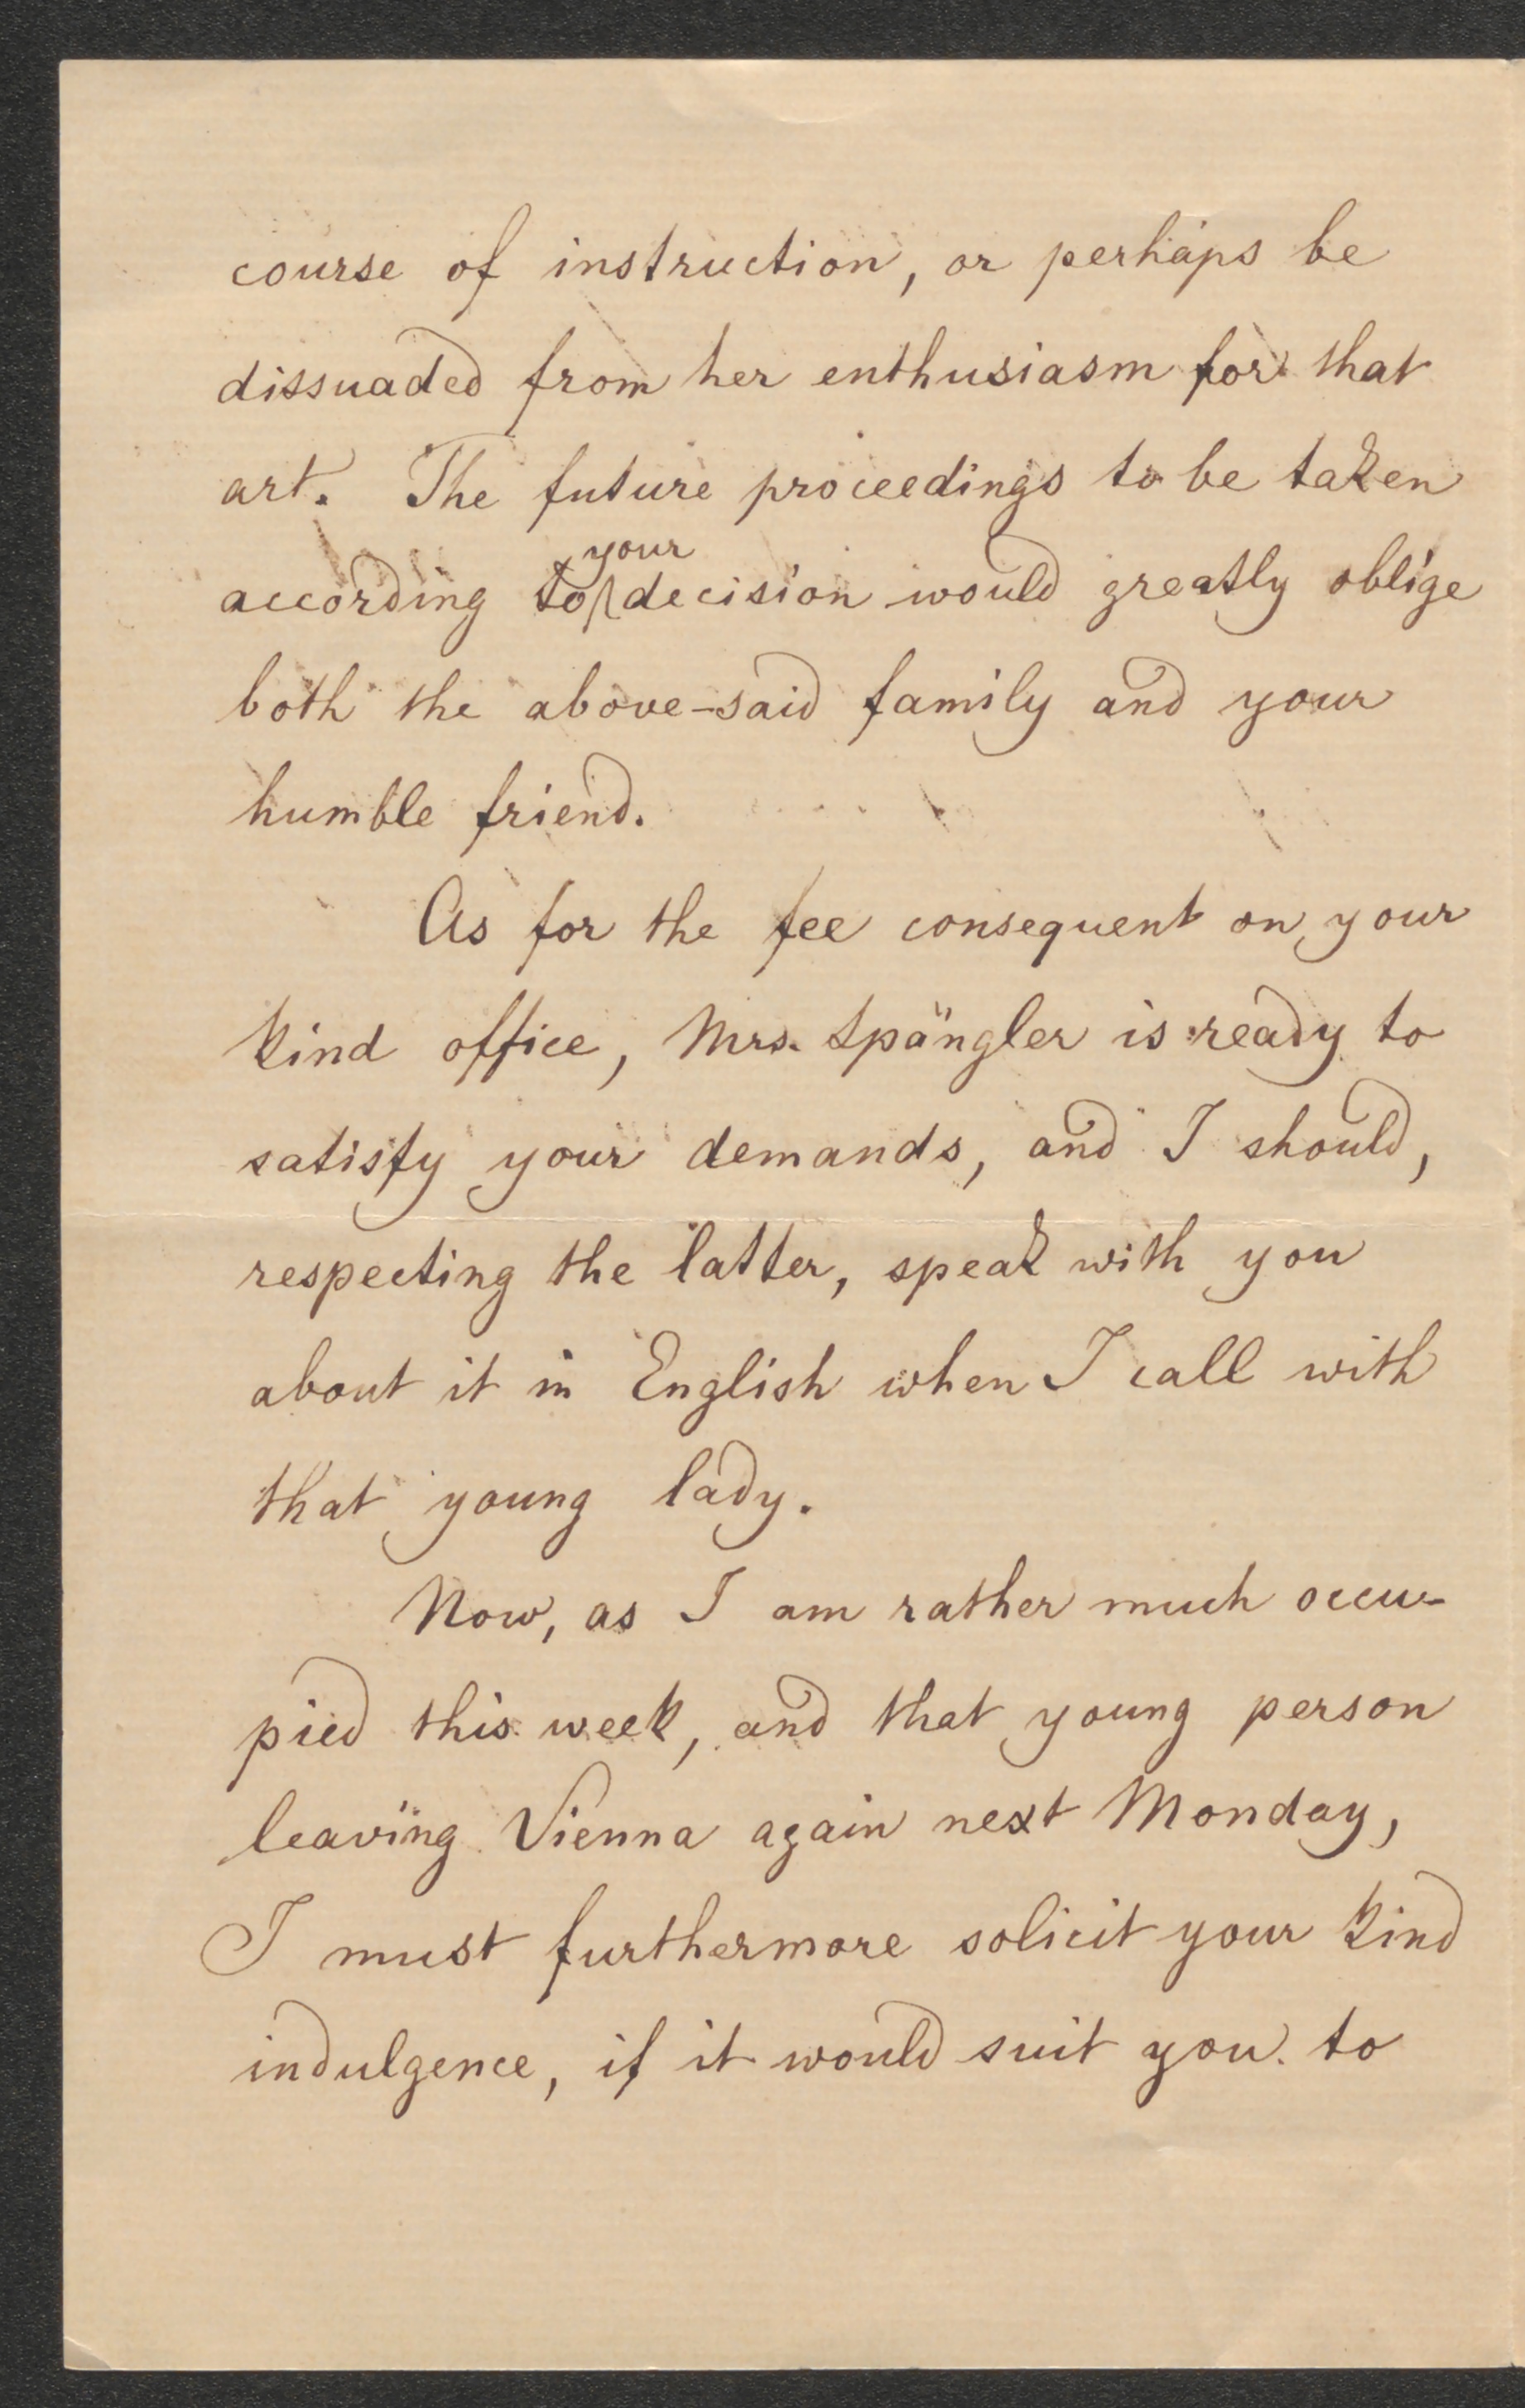 course of instruction, or perhaps be
dissuaded from her enthusiasm for that
art. The future proceedings to be taken
according to your decision would greatly oblige
both the above-said family and your
humble friend.
As for the fee consequent on your
kind office, Mrs. Spängler is ready to
satisfy your demands, and I should,
respecting the latter, speak with you
about it in English when I call with
that young lady.
Now, as I am rather much occu-
pied this week, and that young person
leaving Vienna again next Monday,
I must furthermore solicit your kind
indulgence, if it would suit you to